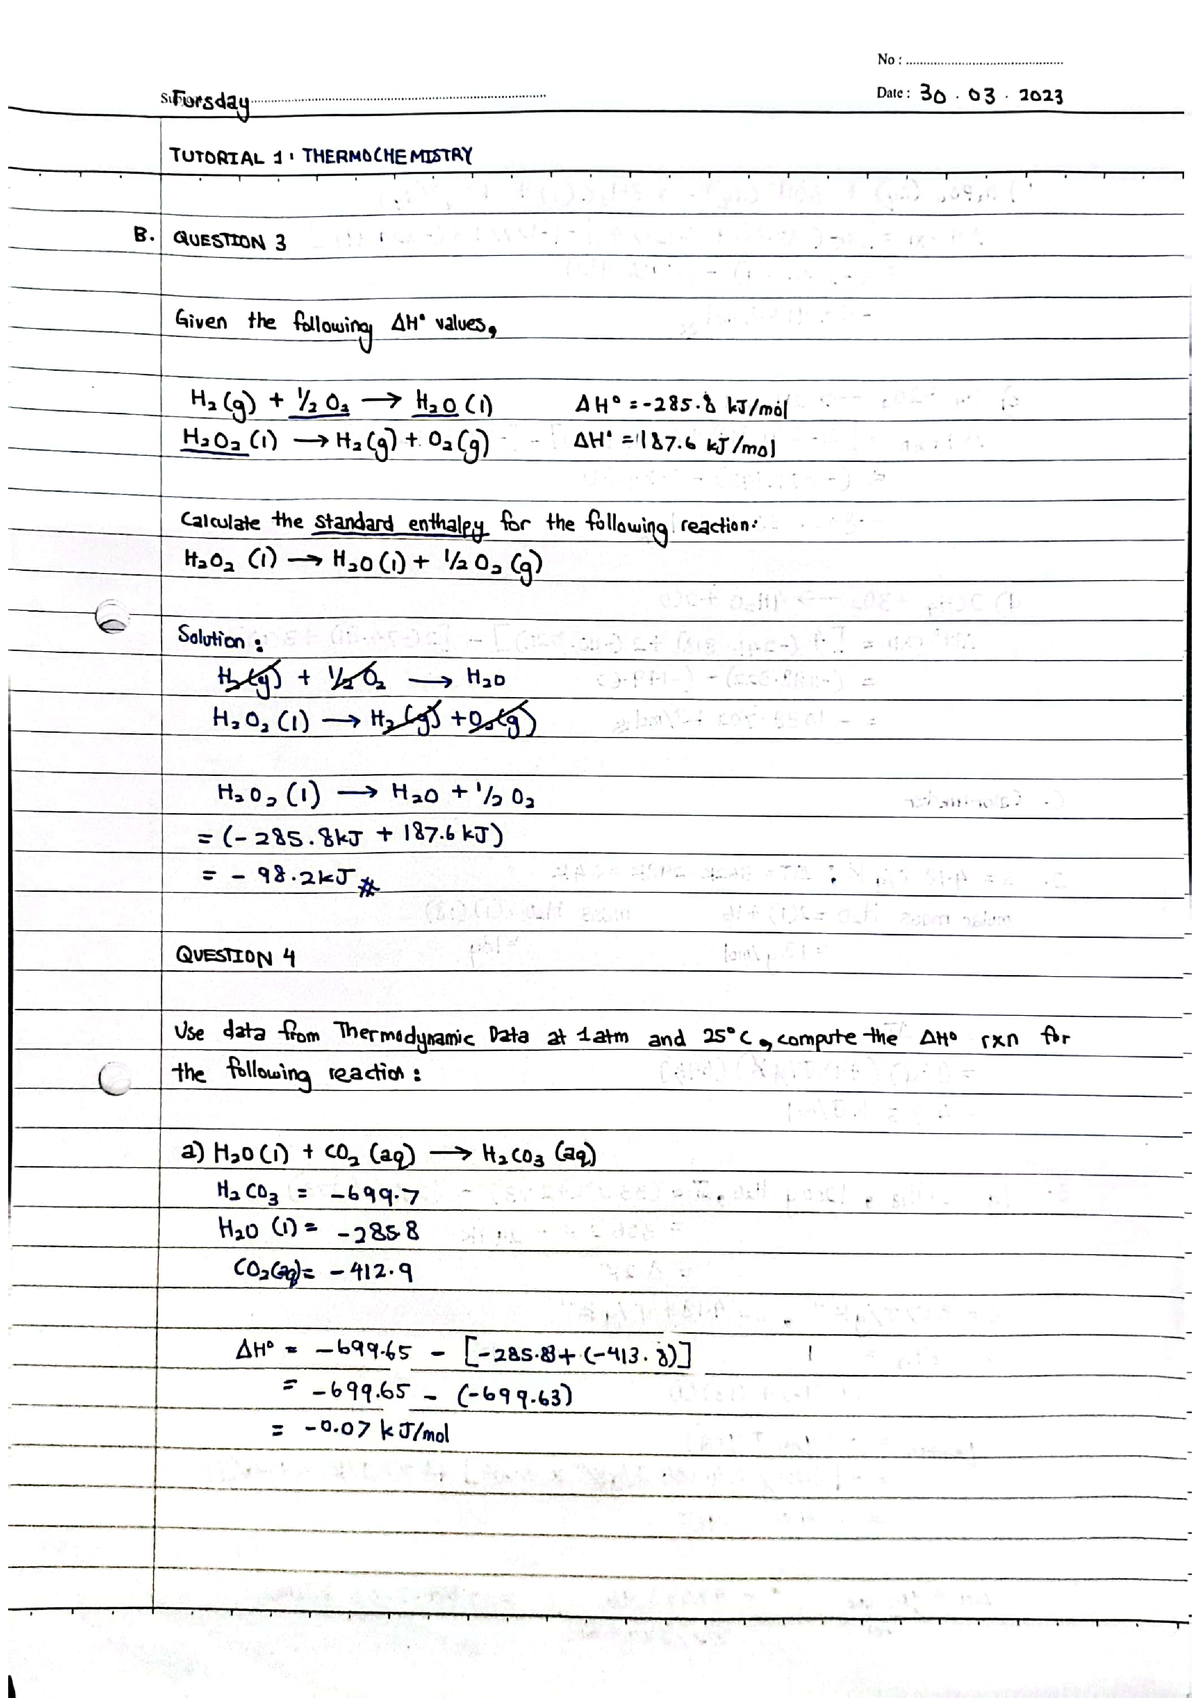 No :
Tursday
Date : 30 . 03 . 2023
TUTORIAL 1 : THERMOCHEMISTRY
B. QUESTION 3
Given the following ΔH° values,
H₂(g) + ½ O₂ → H₂O (l) ΔH° = -285.8 kJ/mol
H₂O₂ (l) → H₂(g) + O₂(g) ΔH° = 187.6 kJ/mol
Calculate the standard enthalpy for the following reaction:
H₂O₂ (l) → H₂O(l) + ½ O₂ (g)
Solution :
H₂(g) + ½ O₂ → H₂O
H₂O₂ (l) → H₂(g) + O₂(g)
H₂O₂ (l) → H₂O + ½ O₂
= (- 285.8kJ + 187.6 kJ)
= - 98.2kJ #
QUESTION 4
Use data from Thermodynamic Data at 1 atm and 25°C, compute the ΔH° rxn for
the following reaction :
a) H₂O(l) + CO₂ (aq) → H₂CO₃ (aq)
H₂CO₃ = -699.7
H₂O (l) = -285.8
CO₂(aq) = -412.9
ΔH° = -699.65 - [-285.83+(-413.8)]
= -699.65 - (-699.63)
= -0.07 kJ/mol